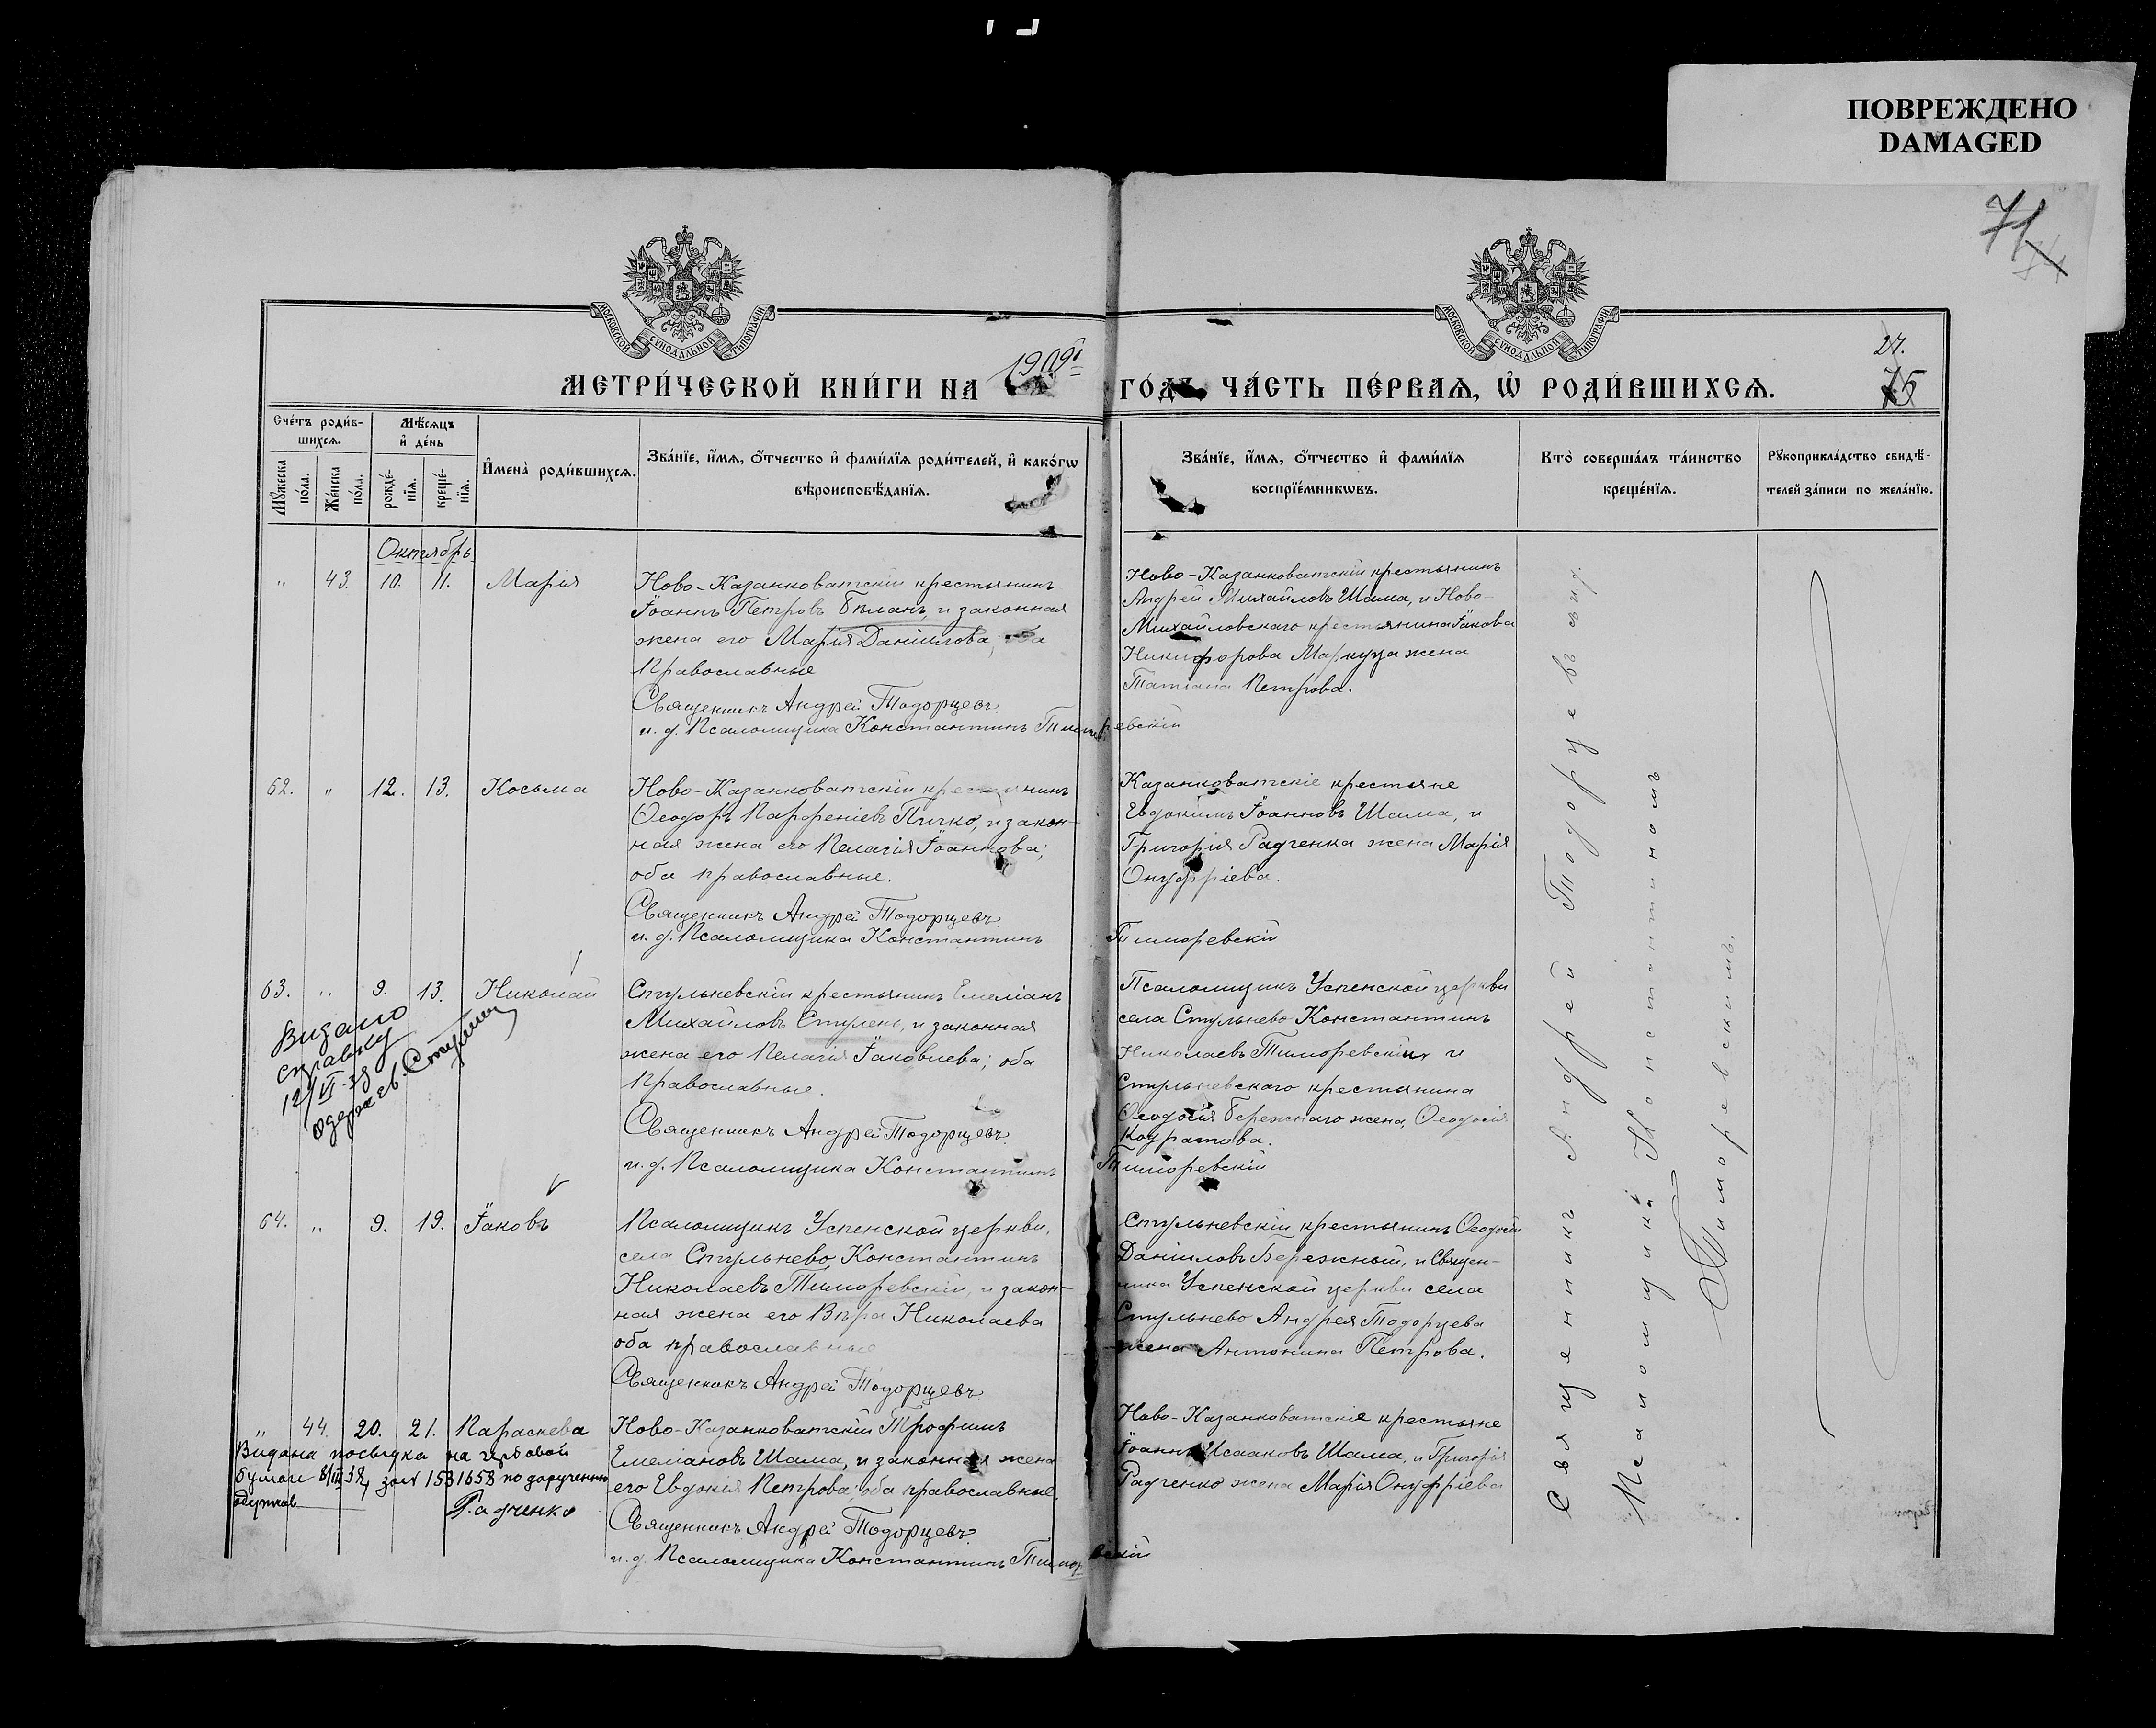 ПОВРЕЖДЕНО
DAMAGED
71
МОСКОВСКОЙ СѴНОДАЛЬНОЙ ТИПОГРАФІИ
МОСКОВСКОЙ СѴНОДАЛЬНОЙ ТИПОГРАФІИ
27.
75
МЕТРИ́ЧЕСКОЙ КНИ́ГИ НА 1909й ГОДЪ, ЧА́СТЬ ПЕ́РВАѦ, Ѡ҆ РОДИ́ВШИХСѦ.
Сче́тъ роди́в-
шихсѧ.
Мꙋ́жеска по́ла.
Же́нска по́ла.
Мѣ́сѧцъ
и҆ де́нь
рожде́-нїѧ.
креще́-нїѧ.
И҆мена̀ роди́вшихсѧ.
Зва́нїе, и҆́мѧ, ѻ҆́тчество и҆ фами́лїѧ роди́телей, и҆ како́гѡ
вѣроисповѣ́данїѧ.
Зва́нїе, и҆́мѧ, ѻ҆́тчество и҆ фами́лїѧ
воспрїе́мникѡвъ.
Кто̀ соверша́лъ та́инство
креще́нїѧ.
Рꙋкоприкла́дство свидѣ́-
телей за́писи по жела́нїю.
Октябрь
" 43. 10. 11. Марія
Ново-Казанковатскій крестьянинъ
Іоаннъ Петровъ Бѣланъ, и законная
жена его Марія Даніилова; оба
православные
Священникъ Андрей Тодорцевъ.
и. д. Псаломщика Константинъ Тиморевскій
Ново-Казанковатскій крестьянинъ
Андрей Михайловъ Шама, и Ново-
Михайловскаго крестьянина Іакова
Никифорова Маркуца жена
Татіана Петрова.
62. " 12. 13. Косьма
Ново-Казанковатскій крестьянинъ
Ѳеодоръ Парѳеніевъ Пичко, и закон-
ная жена его Пелагія Іоаннова;
оба православные.
Священникъ Андрей Тодорцевъ.
и. д. Псаломщика Константинъ Тиморевскій
Казанковатскіе крестьяне
Евдокимъ Іоанновъ Шама, и
Григорія Радченка жена Марія
Онуфріева.
63. " 9. 13. Николай
Видано
справку
12/VI-38
одержав. Стулень
Стульневскій крестьянинъ Емеліанъ
Михайловъ Стулень, и законная
жена его Пелагія Іаковлева; оба
православные.
Священникъ Андрей Тодорцевъ.
и. д. Псаломщика Константинъ Тиморевскій
Псаломщикъ Успенской церкви
села Стульнево Константинъ
Николаевъ Тиморевскій и
Стульневскаго крестьянина
Ѳеодосія Бережнаго жена, Ѳеодосія
Кодратова.
64. " 9. 19. Іаковъ
Псаломщикъ Успенской церкви,
села Стульнево Константинъ
Николаевъ Тиморевскій, и закон-
ная жена его Вѣра Николаева
оба православные
Священникъ Андрей Тодорцевъ.
Стульневскій крестьянинъ Ѳеодосій
Даніиловъ Бережный, и Священ-
ника Успенской церкви села
Стульнево Андрея Тодорцева
жена Антонина Петрова.
" 44. 20. 21. Параскева
Видана посвідка на гербовой
бумаге 8/III 38, 1581658 по доручению
Радченко
Ново-Казанковатскій Трофимъ
Емеліановъ Шама, и законная жена
его Евдокія Петрова; оба православные.
Священникъ Андрей Тодорцевъ.
и. д. Псаломщика Константинъ Тиморевскій
Ново-Казанковатскіе крестьяне
Іоаннъ Исааковъ Шама, и Григорія
Радченко жена Марія Онуфріева
Священникъ Андрей Тодорцевъ
Псаломщикъ Константиномъ
Тиморевскимъ.